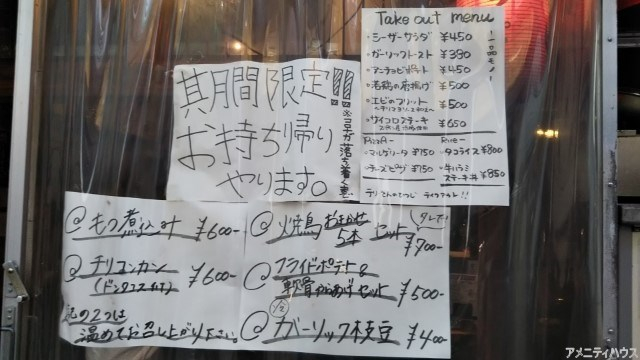 期間限定!!
お持ち帰り
やります。
※コロナが落ち着くまで
Take out menu
・シーザーサラダ ¥450
・ガーリックトースト ¥390
・アンチョビポテト ¥450
・若鶏の唐揚げ ¥500
・エビのフリット ¥500
・サイコロステーキ ¥650
Pizza- Rice-
・マルゲリータ ¥750 ・タコライス ¥800
・チーズピザ ¥750 ・牛ハラミステーキ丼 ¥850
@もつ煮込み ¥600-
@チリコンカン ¥600-
(ドンタコス付き)
の2つは
温めてお召し上がり下さい。
@焼鳥おまかせ5本セット ¥700-
(タレ)
@フライドポテト&
軟骨からあげセット ¥500-
@ガーリック枝豆 ¥400-
アメニティハウス